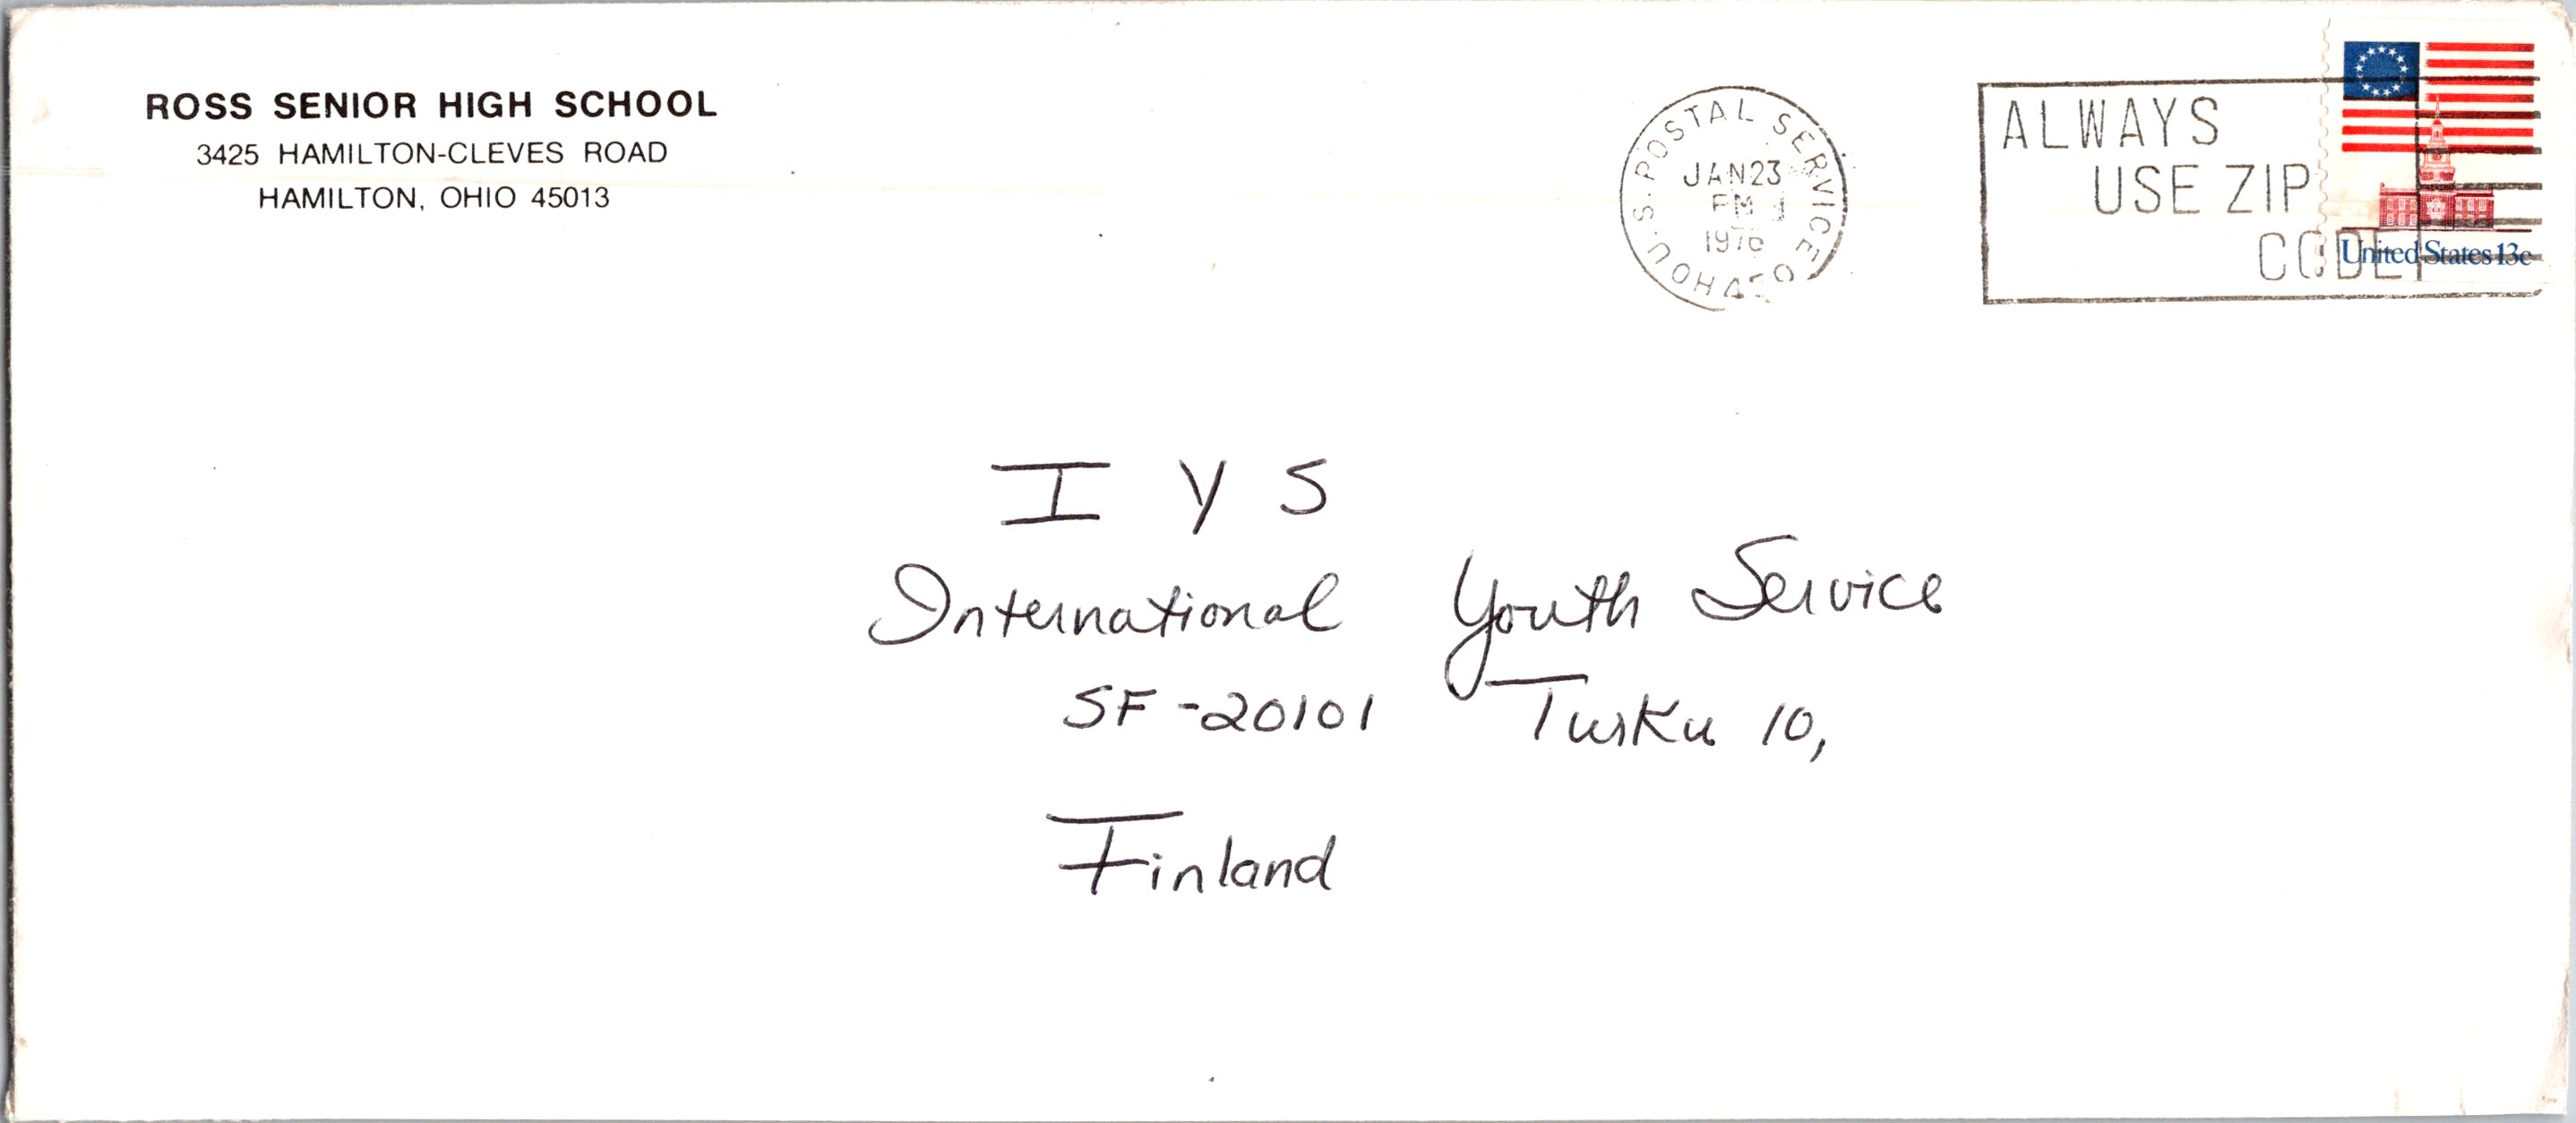 ROSS SENIOR HIGH SCHOOL
3425 HAMILTON-CLEVES ROAD
HAMILTON, OHIO 45013
U.S. POSTAL SERVICE OH 45
JAN 23
PM
1976
ALWAYS
USE ZIP
CODE
United States 13c
I Y S
International Youth Service
SF-20101 Turku 10,
Finland